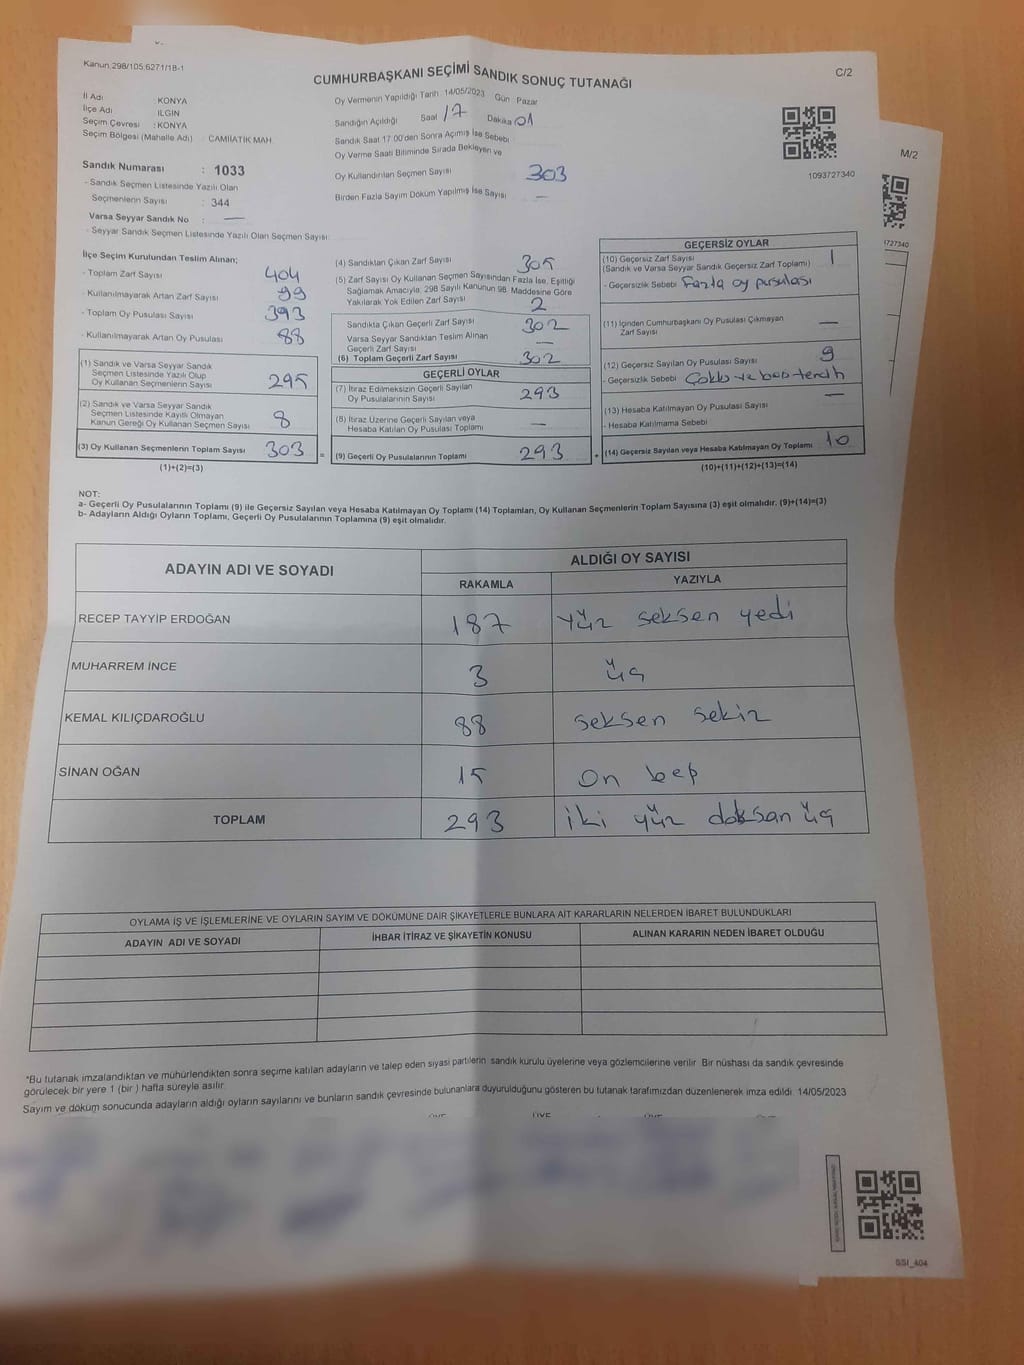 Kanun 298/105,6271/18-1
C/2
CUMHURBAŞKANI SEÇİMİ SANDIK SONUÇ TUTANAĞI
İl Adı : KONYA
İlçe Adı : ILGIN
Seçim Çevresi : KONYA
Seçim Bölgesi (Mahalle Adı) : CAMİİATİK MAH
Sandık Numarası : 1033
- Sandık Seçmen Listesinde Yazılı Olan
Seçmenlerin Sayısı : 344
Varsa Seyyar Sandık No : —
- Seyyar Sandık Seçmen Listesinde Yazılı Olan Seçmen Sayısı:
Oy Vermenin Yapıldığı Tarih 14/05/2023 Gün : Pazar
Sandığın Açıldığı Saat 17 Dakika 01
Sandık Saat 17.00'den Sonra Açımış İse Sebebi
Oy Verme Saati Bitiminde Sırada Bekleyen ve
Oy Kullandırılan Seçmen Sayısı 303
Birden Fazla Sayım Döküm Yapılmış İse Sayısı —
1093727340
M/2
1727340
İlçe Seçim Kurulundan Teslim Alınan;
- Toplam Zarf Sayısı 404
- Kullanılmayarak Artan Zarf Sayısı 99
- Toplam Oy Pusulası Sayısı 393
- Kullanılmayarak Artan Oy Pusulası 88
(1) Sandık ve Varsa Seyyar Sandık
Seçmen Listesinde Yazılı Olup
Oy Kullanan Seçmenlerin Sayısı 295
(2) Sandık ve Varsa Seyyar Sandık
Seçmen Listesinde Kayıtlı Olmayan
Kanun Gereği Oy Kullanan Seçmen Sayısı 8
(3) Oy Kullanan Seçmenlerin Toplam Sayısı 303 =
(1)+(2)=(3)
(4) Sandıktan Çıkan Zarf Sayısı 305
(5) Zarf Sayısı Oy Kullanan Seçmen Sayısından Fazla İse, Eşitliği
Sağlamak Amacıyla; 298 Sayılı Kanunun 98. Maddesine Göre
Yakılarak Yok Edilen Zarf Sayısı 2
Sandıkta Çıkan Geçerli Zarf Sayısı 302
Varsa Seyyar Sandıktan Teslim Alınan
Geçerli Zarf Sayısı —
(6) Toplam Geçerli Zarf Sayısı 302
GEÇERLİ OYLAR
(7) İtiraz Edilmeksizin Geçerli Sayılan
Oy Pusulalarının Sayısı 293
(8) İtiraz Üzerine Geçerli Sayılan veya
Hesaba Katılan Oy Pusulası Toplamı —
(9) Geçerli Oy Pusulalarının Toplamı 293 +
GEÇERSİZ OYLAR
(10) Geçersiz Zarf Sayısı 1
(Sandık ve Varsa Seyyar Sandık Geçersiz Zarf Toplamı)
- Geçersizlik Sebebi Fazla oy pusulası
(11) İçinden Cumhurbaşkanı Oy Pusulası Çıkmayan
Zarf Sayısı —
(12) Geçersiz Sayılan Oy Pusulası Sayısı 9
- Geçersizlik Sebebi Çoklu ve boş tercih
(13) Hesaba Katılmayan Oy Pusulası Sayısı —
- Hesaba Katılmama Sebebi
(14) Geçersiz Sayılan veya Hesaba Katılmayan Oy Toplamı 10
(10)+(11)+(12)+(13)=(14)
NOT:
a- Geçerli Oy Pusulalarının Toplamı (9) ile Geçersiz Sayılan veya Hesaba Katılmayan Oy Toplamı (14) Toplamları, Oy Kullanan Seçmenlerin Toplam Sayısına (3) eşit olmalıdır. (9)+(14)=(3)
b- Adayların Aldığı Oyların Toplamı, Geçerli Oy Pusulalarının Toplamına (9) eşit olmalıdır.
ADAYIN ADI VE SOYADI
ALDIĞI OY SAYISI
RAKAMLA YAZIYLA
RECEP TAYYİP ERDOĞAN 187 yüz seksen yedi
MUHARREM İNCE 3 üç
KEMAL KILIÇDAROĞLU 88 seksen sekiz
SİNAN OĞAN 15 on beş
TOPLAM 293 iki yüz doksan üç
OYLAMA İŞ VE İŞLEMLERİNE VE OYLARIN SAYIM VE DÖKÜMÜNE DAİR ŞİKAYETLERLE BUNLARA AİT KARARLARIN NELERDEN İBARET BULUNDUKLARI
ADAYIN ADI VE SOYADI İHBAR İTİRAZ VE ŞİKAYETİN KONUSU ALINAN KARARIN NEDEN İBARET OLDUĞU
*Bu tutanak imzalandıktan ve mühürlendikten sonra seçime katılan adayların ve talep eden siyasi partilerin sandık kurulu üyelerine veya gözlemcilerine verilir. Bir nüshası da sandık çevresinde
görülecek bir yere 1 (bir) hafta süreyle asılır.
Sayım ve döküm sonucunda adayların aldığı oyların sayılarını ve bunların sandık çevresinde bulunanlara duyurulduğunu gösteren bu tutanak tarafımızdan düzenlenerek imza edildi. 14/05/2023
ÜYE ÜYE ÜYE
SSI_404